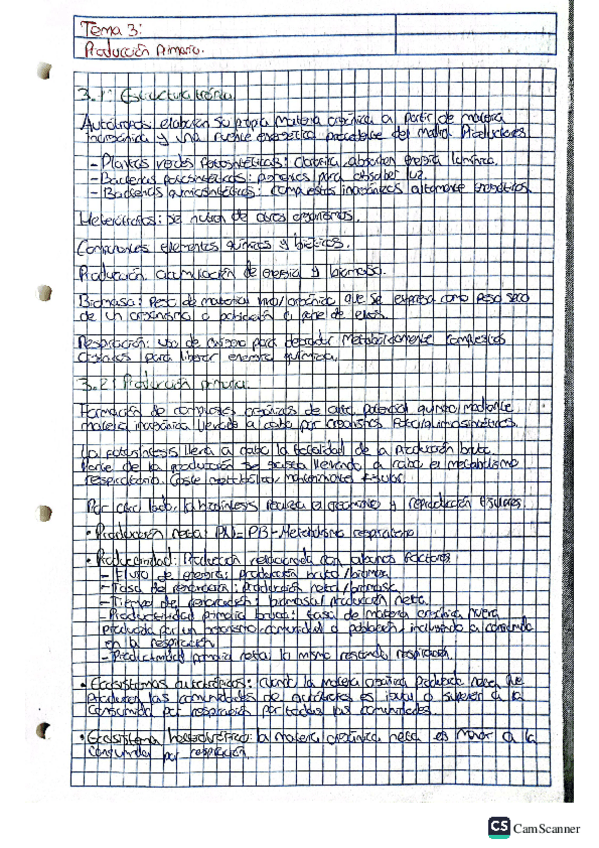 Tema 3:
Producción Primaria.
3.1: Estructura trófica
Autótrofos: elaboran su propia materia orgánica a partir de materia
inorgánica y una fuente energética procedente del medio. Productores
- Plantas verdes fotosintéticas: clorofila, absorben energía lumínica.
- Bacterias fotosintéticas: para absorber luz.
- Bacterias quimiosintéticas: compuestos inorgánicos altamente energéticos.
Heterótrofos: se nutren de otros organismos.
elementos químicos y bióticos.
Producción: acumulación de energía y biomasa.
Biomasa: Peso de material orgánica que se expresa como peso seco
de un organismo o población o parte de ellos.
Respiración: uso de oxígeno para degradar metabólicamente compuestos
orgánicos para liberar energía química.
3.2: Producción primaria.
Formación de complejos orgánicos de alto potencial químico mediante
materia inorgánica llevada a cabo por organismos foto/quimiosintéticos.
La fotosíntesis lleva a cabo la totalidad de la producción bruta.
Parte de la producción se gasta llevando a cabo el metabolismo
respiratorio. Coste metabólico, mantenimiento tisular.
Por otro lado, la biosíntesis realiza el crecimiento y reproducción tisulares.
• Producción neta: PN = PB - Metabolismo respiratorio
• Productividad: Producción relacionada con algunos factores
- Flujo de energía: producción bruta/biomasa
- Tasa de renovación: producción neta/biomasa
- Tiempo de renovación: biomasa/producción neta.
- Productividad primaria bruta: tasa de materia orgánica nueva
producida por un organismo, comunidad o población, incluyendo la consumida
en la respiración
- Productividad primaria neta: lo mismo restando respiración.
• Ecosistemas autotróficos: Cuando la materia orgánica producida neta que
producen las comunidades de autótrofos es igual o superior a la
consumida por respiración por todas las comunidades.
• Ecosistema heterotrófico: la materia orgánica neta es menor a la
consumida por respiración.
CS CamScanner